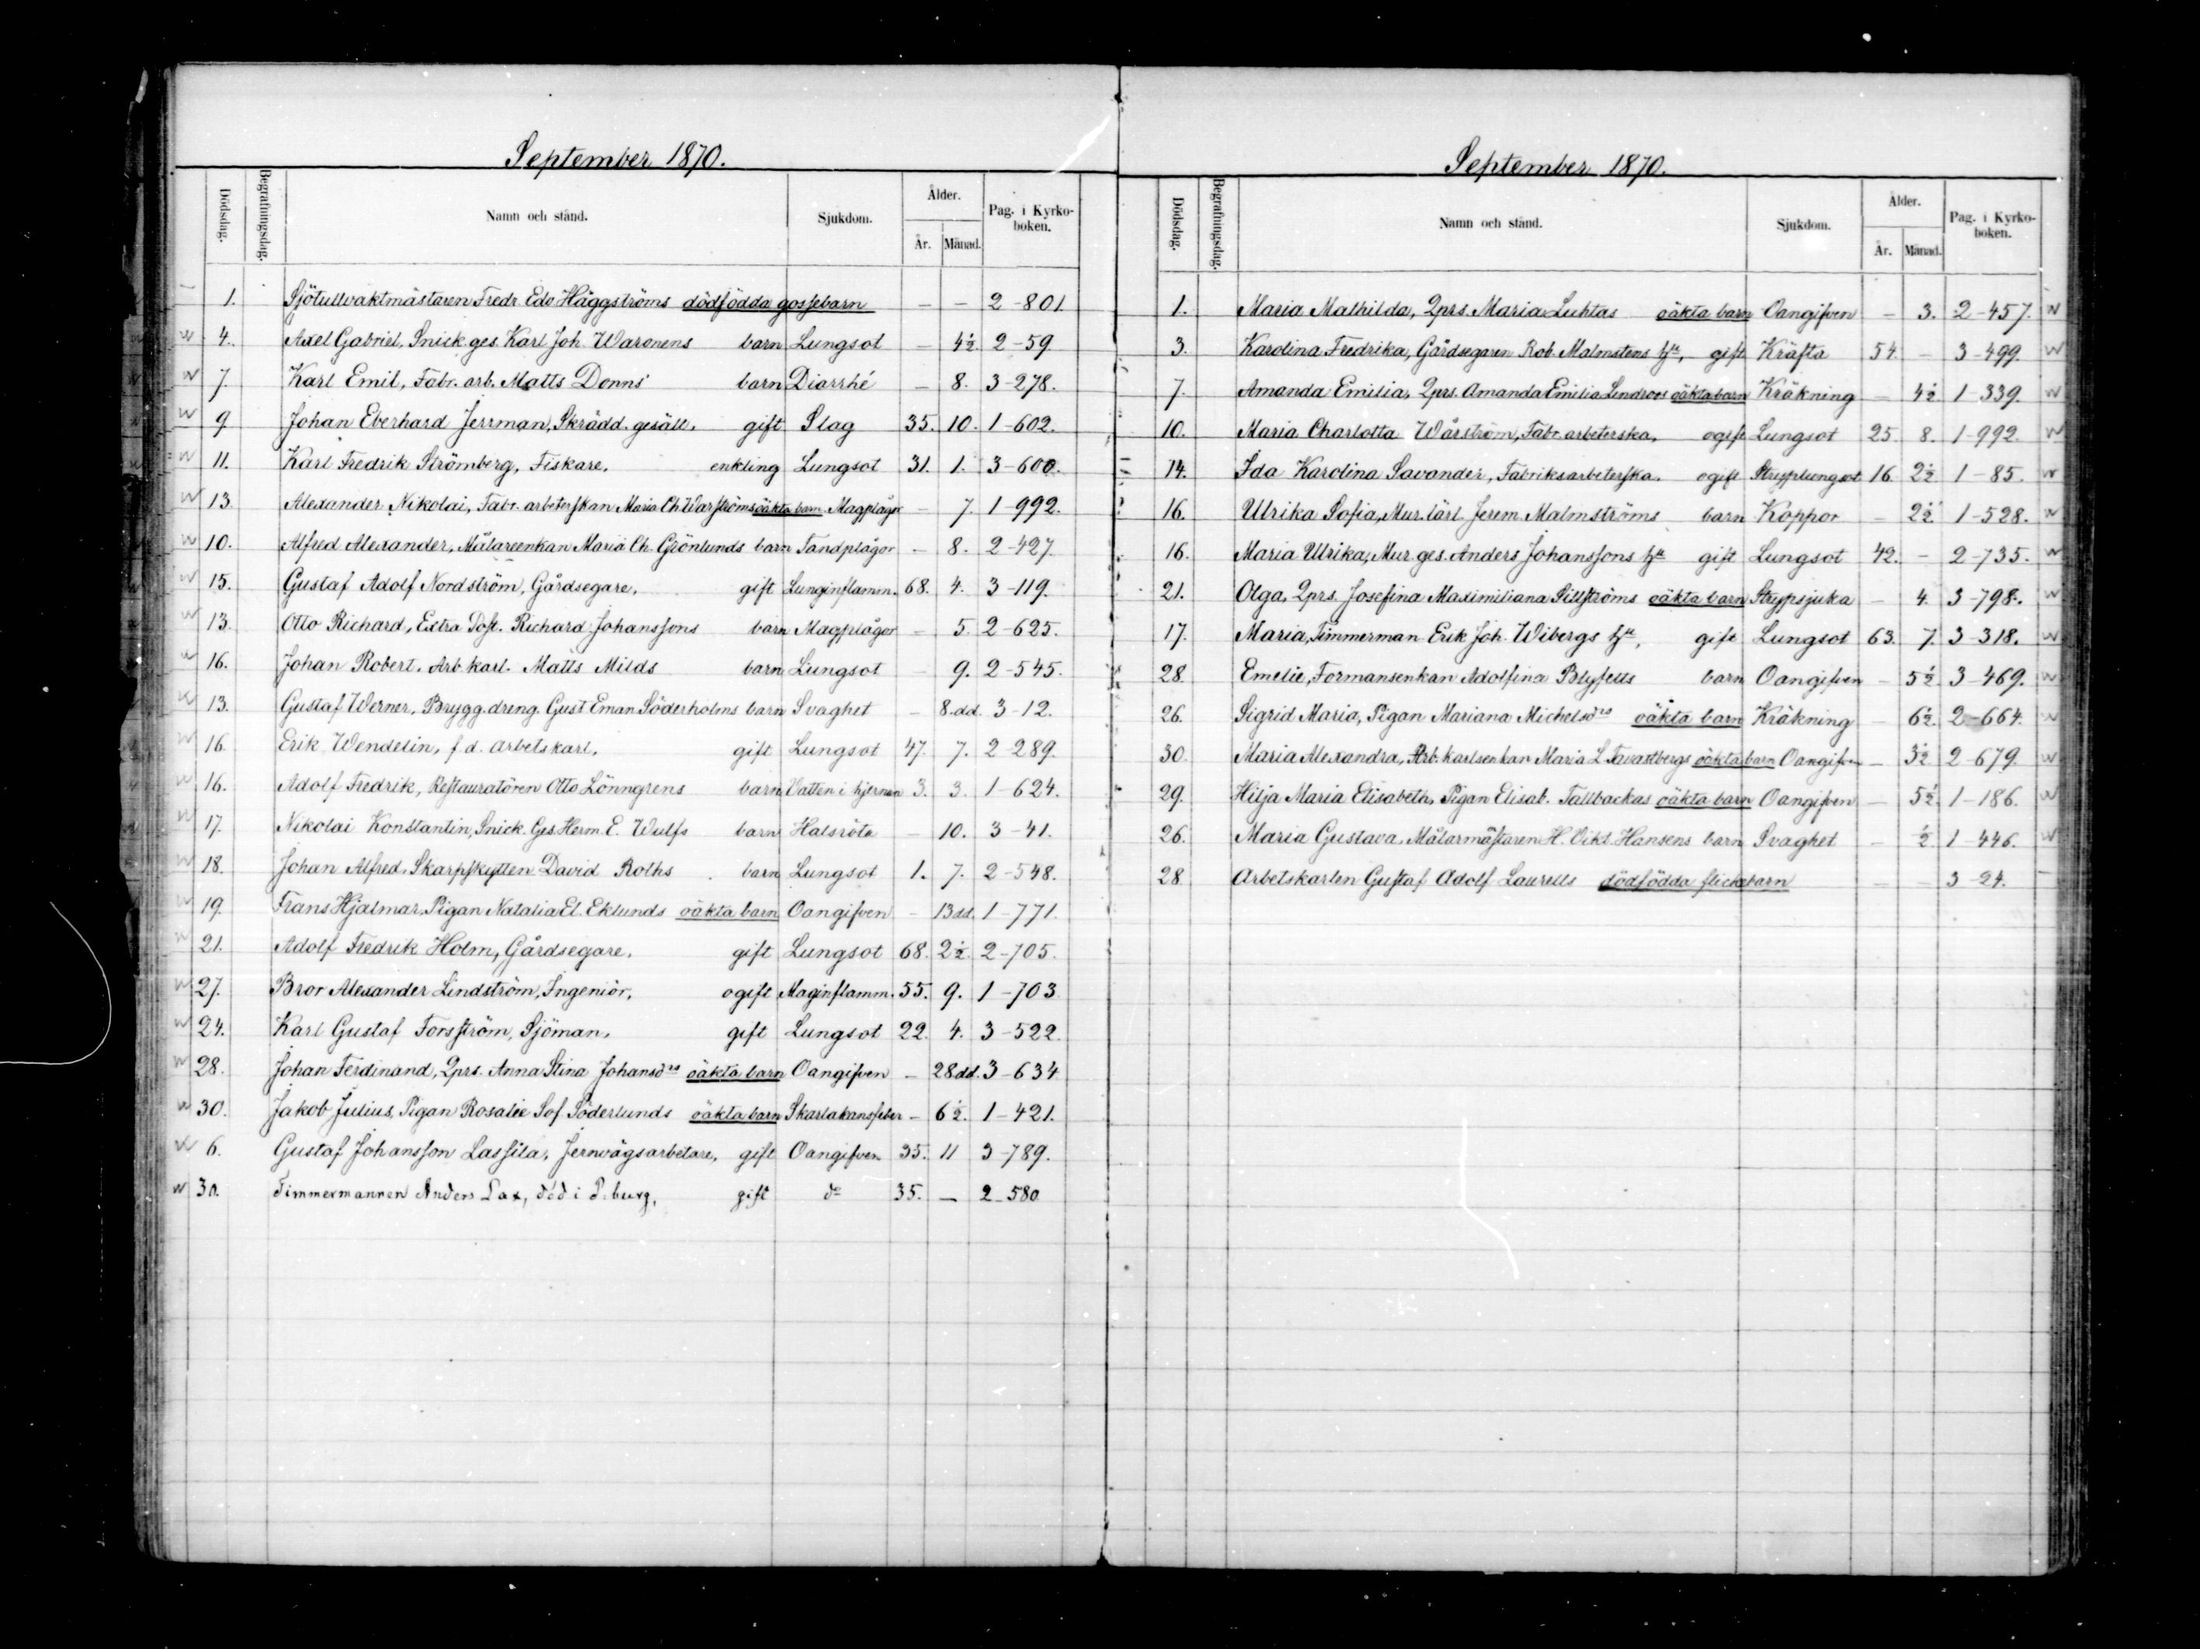 September 1870.
Dödsdag. Begrafningsdag. Namn och stånd. Sjukdom. Ålder. År. Månad. Pag. i Kyrkoboken.
1. Sjötullvaktmästaren Fredr. Edv. Häggströms dödfödda gossebarn — — 2-801.
4. Axel Gabriel, Snick. ges. Karl Joh. Waronens barn Lungsot — 4½ 2-59.
7. Karl Emil, Fabr. arb. Matts Donns barn Diarrhé — 8. 3-278.
9. Johan Eberhard Jerrman, Skrädd. gesäll. gift Slag 35. 10. 1-602.
11. Karl Fredrik Strömberg, Fiskare. enkling Lungsot 31. 1. 3-600.
13. Alexander Nikolai, Fabr. arbeterskan Maria Ch. Warströms oäkta barn Magplågor — 7. 1-992.
10. Alfred Alexander, Målareenkan Maria Ch. Grönlunds barn Tandplågor — 8. 2-427.
15. Gustaf Adolf Nordström, Gårdsegare. gift Lunginflamm. 68. 4. 3-119.
13. Otto Richard, Extra Post. Richard Johanssons barn Magplågor — 5. 2-625.
16. Johan Robert. Arb. karl. Matts Milds barn Lungsot — 9. 2-545.
13. Gustaf Werner, Brygg. dreng. Gust Eman Söderholms barn Svaghet — 8.dd. 3-12.
16. Erik Wendelin, f d. arbetskarl. gift Lungsot 47. 7. 2-289.
16. Adolf Fredrik, Restauratören Otto Lönngrens barn Vatten i hjernan 3. 3. 1-624.
17. Nikolai Konstantin, Snick. Ges. Herm. E. Wulfs barn Halsröta — 10. 3-41.
18. Johan Alfred, Skarpskytten David Roths barn Lungsot 1. 7. 2-548.
19. Frans Hjalmar, Pigan Natalia El. Eklunds oäkta barn Oangifven — 13 dd. 1-771.
21. Adolf Fredrik Holm, Gårdsegare. gift Lungsot 68. 2½. 2-705.
27. Bror Alexander Lindström, Ingeniör. ogift Maginflamm. 55. 9. 1-703
24. Karl Gustaf Forsström, Sjöman. gift Lungsot 22. 4. 3-522.
28. Johan Ferdinand, Qprs. Anna Stina Johansdrs oäkta barn Oangifven — 28 dd. 3-634
30. Jakob Julius, Pigan Rosalie Sof Söderlunds oäkta barn Skarlakansfeber — 6½. 1-421.
6. Gustaf Johansson Lassila, Jernvägsarbetare, gift Oangifven 35. 11 3-789.
30. Timmermannen Anders Lax, död i P:burg, gift do 35. — 2-580
September 1870.
Dödsdag. Begrafningsdag. Namn och stånd. Sjukdom. Ålder. År. Månad. Pag. i Kyrkoboken.
1. Maria Mathilda, Qprs. Maria Luhtas oäkta barn Oangifven — 3. 2-457.
3. Karolina Fredrika, Gårdsegaren Rob. Malmstens hu, gift Kräfta 54. — 3-499.
7. Amanda Emilia, Qprs. Amanda Emilia Lindroos oäkta barn Kräkning — 4½ 1-339.
10. Maria Charlotta Wårström, Fabr. arbeterska. ogift Lungsot 25. 8. 1-992.
14. Ida Karolina Savander, Fabriksarbeterska. ogift Stryplungsot 16. 2½ 1-85.
16. Ulrika Sofia, Mur. lärl. Jerem. Malmströms barn Koppor — 2½ 1-528.
16. Maria Ulrika, Mur. ges. Anders Johanssons hu gift Lungsot 42. — 2-735.
21. Olga, Qprs. Josefina Maximiliana Sillströms oäkta barn Strypsjuka — 4. 3-798.
17. Maria, Timmerman Erik Joh. Wibergs hu, gift Lungsot 63. 7. 3-318.
28. Emelie, Formansenkan Adolfina Blyfells barn Oangifven — 5½ 3-469.
26. Sigrid Maria, Pigan Mariana Michelsdrs oäkta barn Kräkning — 6½. 2-664.
30. Maria Alexandra, Arb. karlsenkan Maria L Tavastbergs oäkta barn Oangifven — 3½ 2-679
29. Hilja Maria Elisabeth, Pigan Elisab. Tallbackas oäkta barn Oangifven — 5½ 1-186.
26. Maria Gustava, Målarmästaren H. Vikt. Hansens barn Svaghet — ½ 1-446.
28. Arbetskarlen Gustaf Adolf Laurells dödfödda flickebarn — — 3-24.